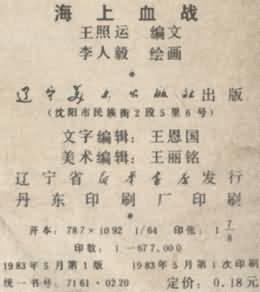 海上血战
王照运 编文
李人毅 绘画
辽宁美术出版社出版
(沈阳市民族街2段5里6号)
文字编辑：王恩国
美术编辑：王丽铭
辽宁省新华书店发行
丹东印刷厂印刷
开本：787×1092 1/64 印张：1 7/8
印数：1—677,000
1983年5月第1版 1983年5月第1次印刷
统一书号：7161·0220 定价：0.18元